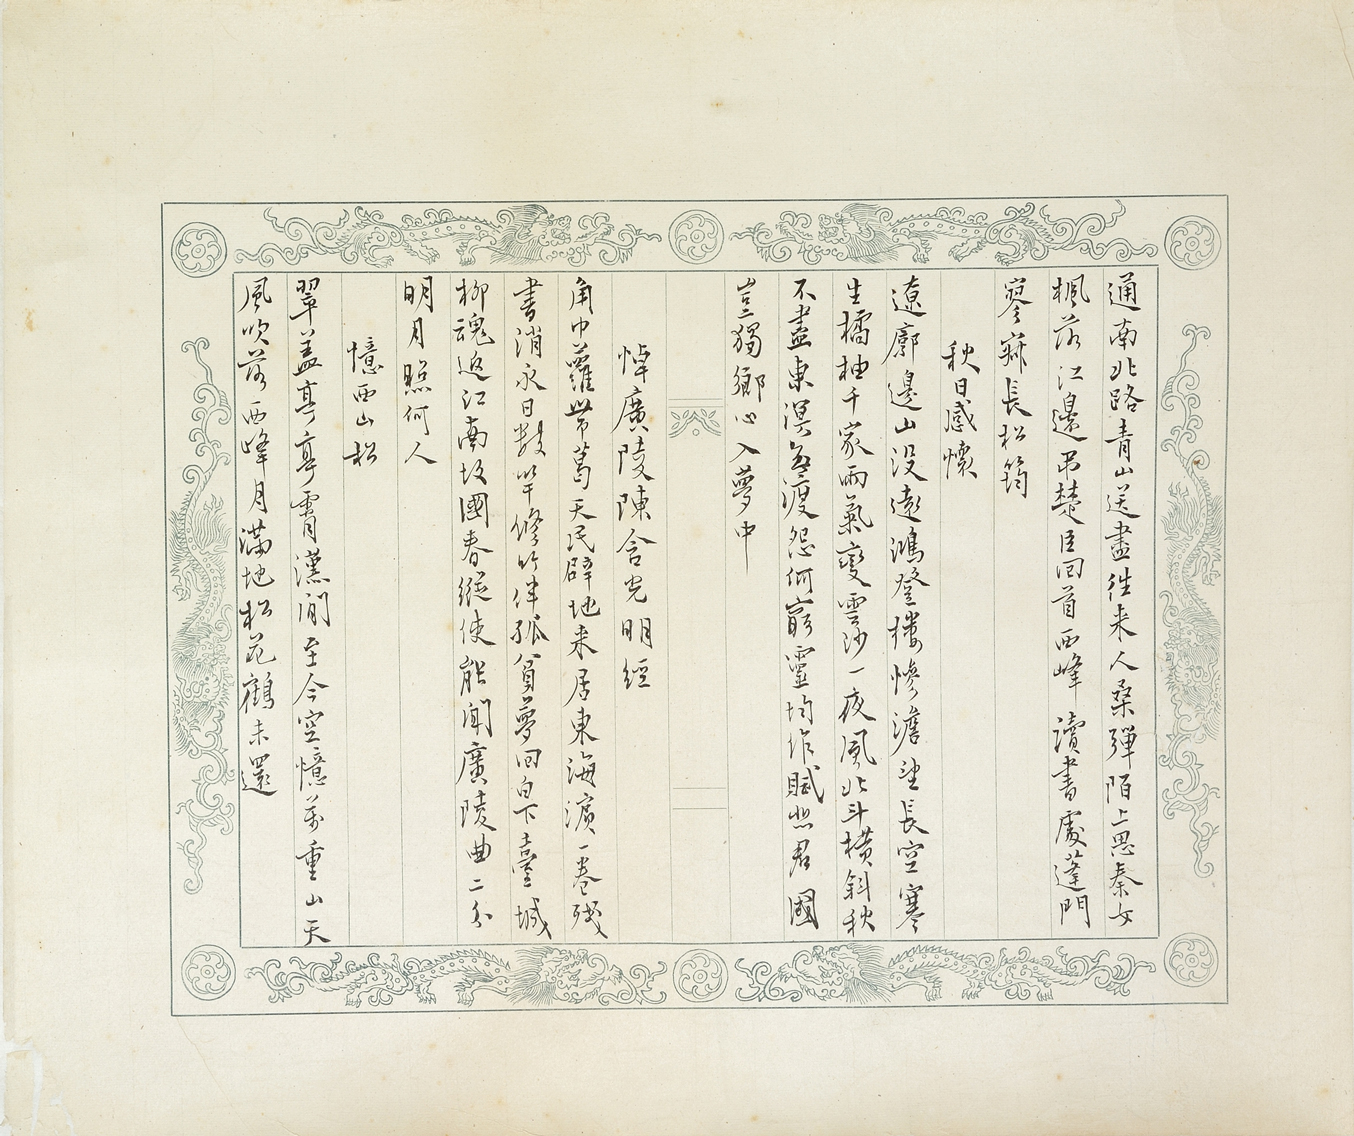 通南北路青山送盡往来人桑彈陌上思秦女
楓落江邊吊楚臣回首西峰讀書處蓬門
寥寂長松筠
秋日感懷
遼廓邊山没遠鴻登樓慘澹望長空寒
生橘柚千家雨氣變雲沙一夜風北斗橫斜秋
不盡東溟無渡怨何窮靈均作賦悲君國
豈獨鄉心入夢中
悼廣陵陳含光明經
角巾蘿帶葛天民辟地来居東海濱一卷殘
書消永日數竿修竹伴孤貧夢回白下臺城
柳魂返江南故國春縱使能聞廣陵曲二分
明月照何人
憶西山松
翠蓋亭亭霄漢間至今空憶萬重山天
風吹落西峰月滿地松花鶴未還